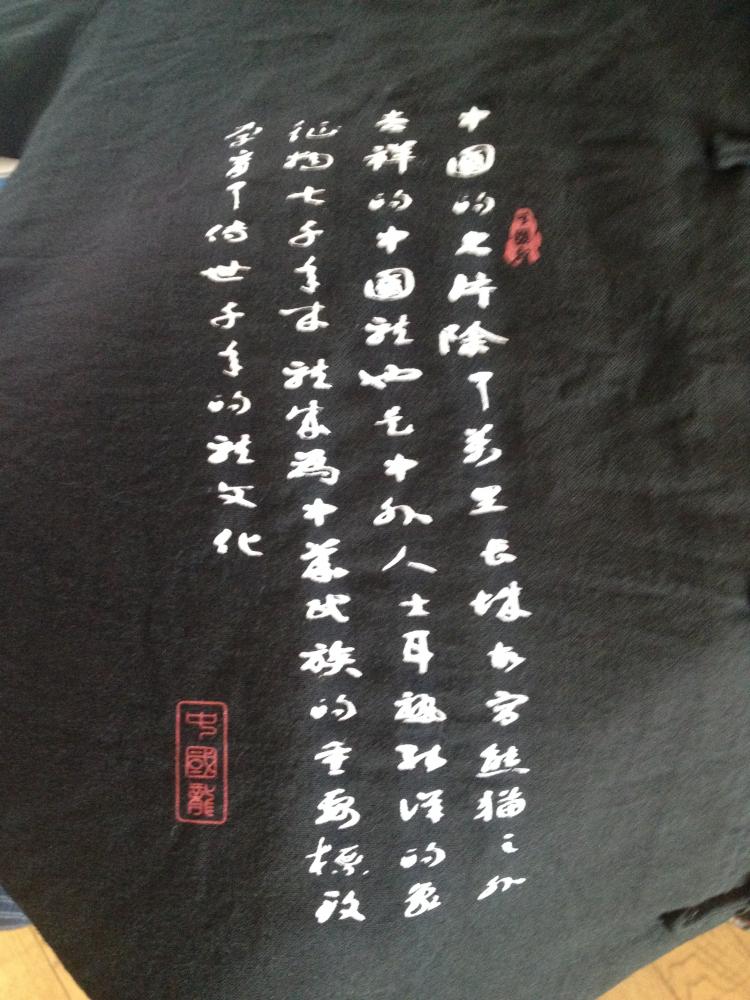 中國龍
中國的名片除了萬里長城故宮熊猫之外
吉祥的中國龍也是中外人士耳熟能詳的象
征物七千年来龍成為中華民族的重要標致
孕育了傳世千年的龍文化
中國龍